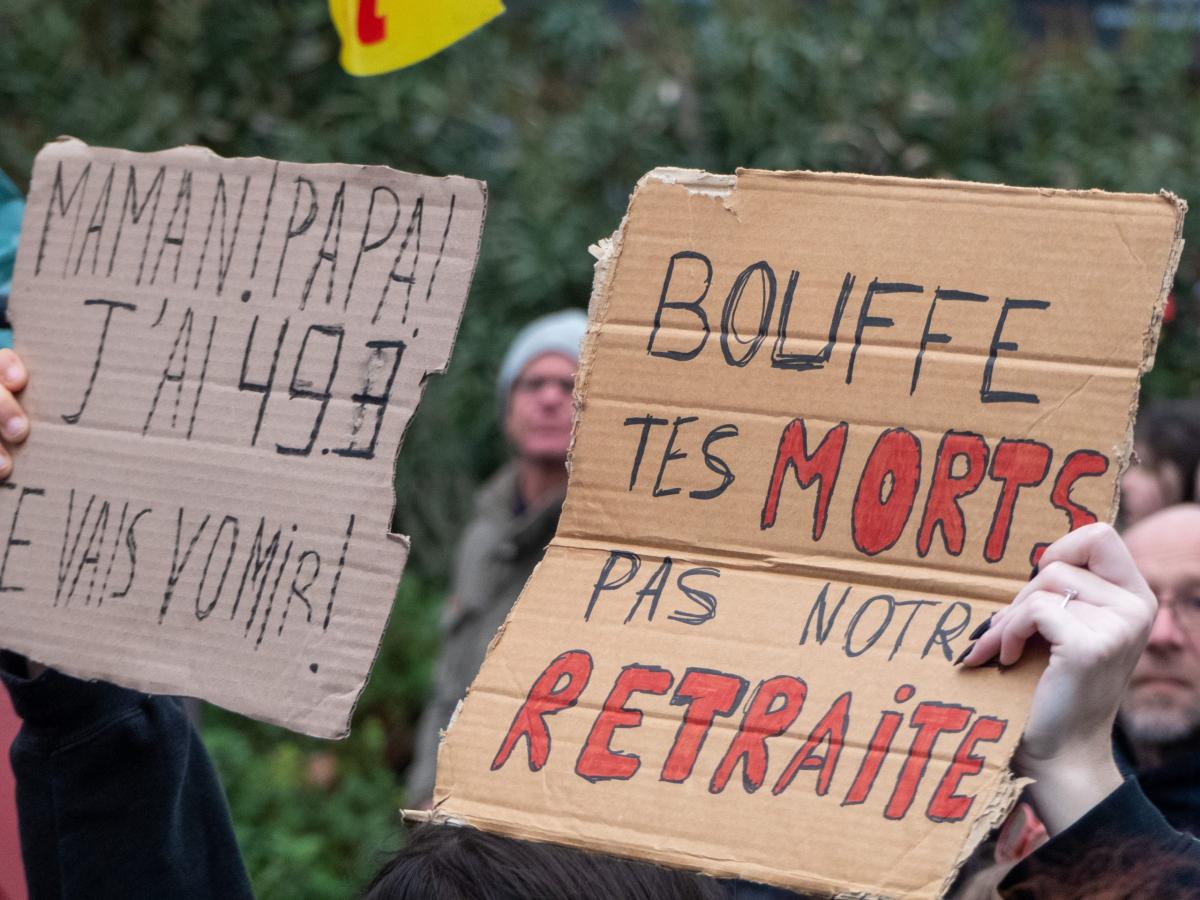 MAMAN! PAPA!
J'AI 49.3
E VAIS VOMiR!
BOUFFE
TES MORTS
PAS NOTR
RETRAiTE